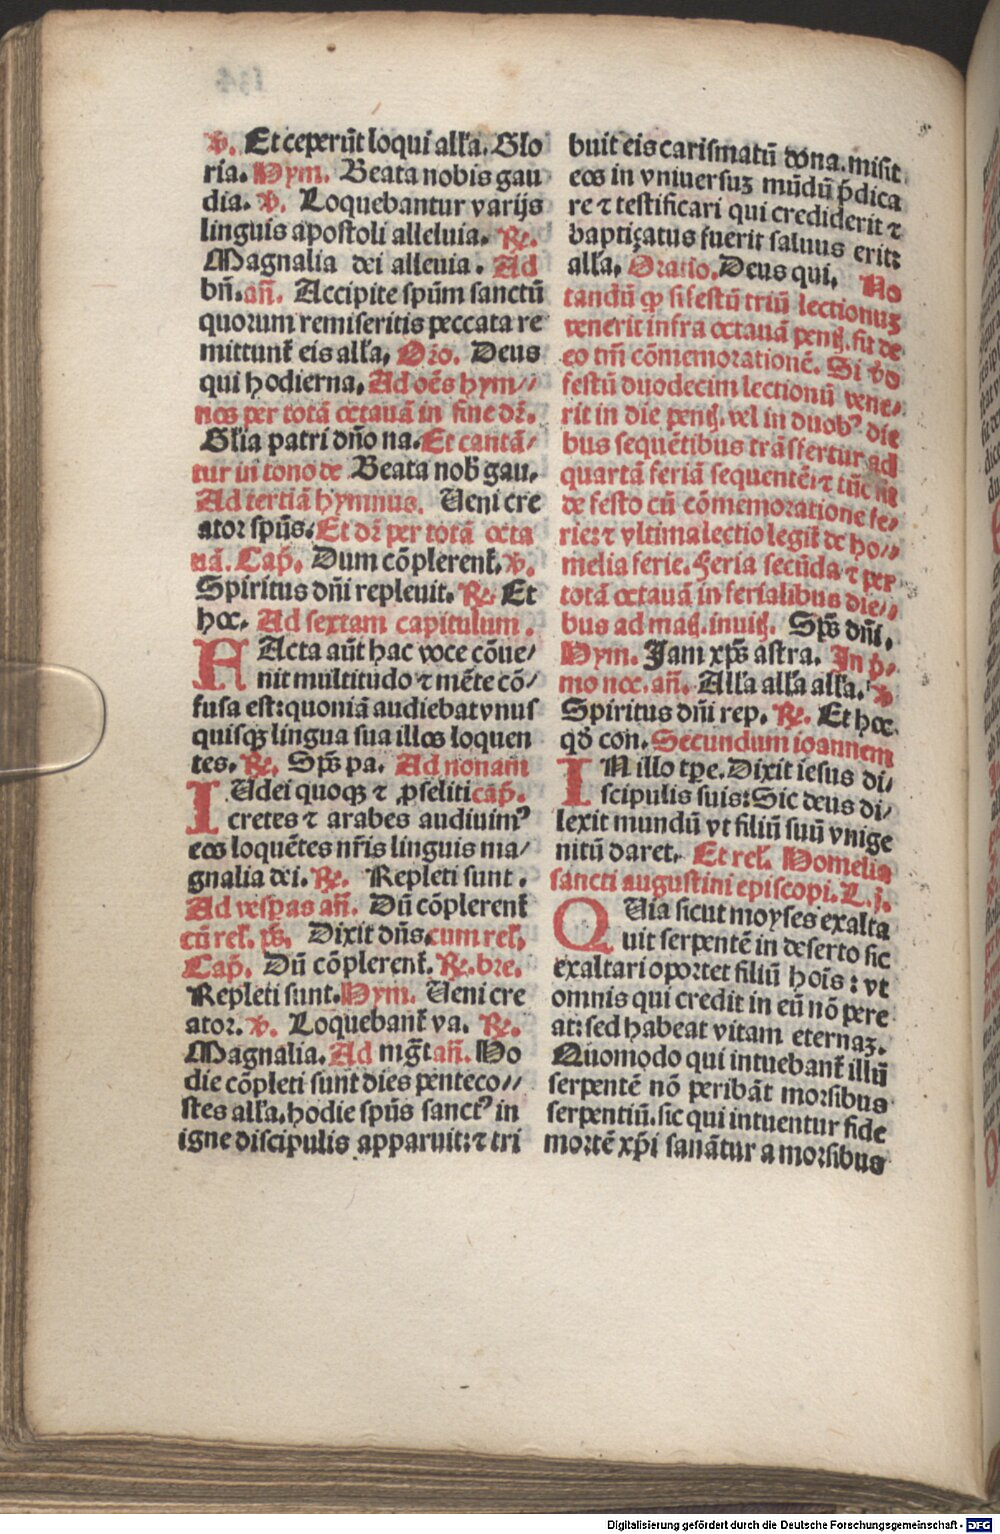 ꝟ. Et ceperũt loqui alľa. Glo
ria. Hym. Beata nobis gau
dia. ꝟ. Loquebantur varijs
linguis apostoli alleluia. ℞.
Magnalia dei allevia. Ad
bñ. añ. Accipite spũm sanctũ
quorum remiseritis peccata re
mittunt̃ eis alľa. Oro. Deus
qui hodierna. Ad oẽs hym//
nos per totã octauã in fine dr̃.
Glľia patri dño na. Et cantã/
tur in tono de Beata nob̃ gau.
Ad tertiã hymnus. Ueni cre
ator spũs. Et dr̃ per totã octa
uã. Cap̃. Dum cõplerent̃. ꝟ.
Spiritus dñi repleuit. ℞. Et
hoc. Ad sextam capitulum.
FActa aũt hac voce cõue/
nit multitudo ⁊ mẽte cõ/
fusa est: quoniã audiebat vnus
quisqꝫ lingua sua illos loquen
tes. ℞. Sp̃s pa. Ad nonam
IUdei quoqꝫ ⁊ ꝓseliti cap̃.
cretes ⁊ arabes audiuimꝰ
eos loquẽtes nr̃is linguis ma/
gnalia dei. ℞. Repleti sunt.
Ad vesperas añ. Dũ cõplerent̃
cũ rel̃. p̃s. Dixit dñs. cum rel̃.
Cap̃. Dũ cõplerent̃. ℞. bre.
Repleti sunt. Hym. Ueni cre
ator. ꝟ. Loquebant̃ va. ℞.
Magnalia. Ad mg̃t añ. Ho
die cõpleti sunt dies penteco//
stes alľa. hodie spũs sanctꝰ in
igne discipulis apparuit: ⁊ tri
buit eis carismatũ dona. misit
eos in vniuersuꝫ mũdũ p̃dica
re ⁊ testificari qui crediderit ⁊
baptiçatus fuerit saluus erit:
alľa. Oratio. Deus qui. No
tandũ ꝙ si festũ triũ lectionuꝫ
venerit infra octauã pentḥ. fit de
eo tm̃ cõmemorationẽ. Si ṽo
festũ duodecim lectionũ vene/
rit in die pentḥ. vel in duobꝰ die
bus sequẽtibus trãsfertur ad
quartã feriã sequentẽ: ⁊ tũc fit
de festo cũ cõmemoratione fe/
rie: ⁊ vltima lectio legit̃ de ho//
melia ferie. Feria secũda ⁊ per
totã octauã in ferialibus die//
bus ad matḥ. inuitḥ. Sp̃s dñi.
Hym. Jam xp̃s astra. In p̃/
mo noc. añ. Alľa alľa alľa. ꝟ
Spiritus dñi rep. ℞. Et hoc
qđ con. Secundum ioannem
IN illo tp̃e. Dixit iesus di/
scipulis suis: Sic deus di/
lexit mundũ vt filiũ suũ vnige
nitũ daret. Et rel̃. Homelia
sancti augustini episcopi. L. j.
QUia sicut moyses exalta
uit serpentẽ in deserto sic
exaltari oportet filiũ hoĩs: vt
omnis qui credit in eũ nõ pere
at: sed habeat vitam eternaꝫ.
Quomodo qui intuebant̃ illũ
serpentẽ nõ peribãt morsibus
serpentiũ. sic qui intuentur fide
mortẽ xp̃i sanãtur a morsibus
Digitalisierung gefördert durch die Deutsche Forschungsgemeinschaft - DFG